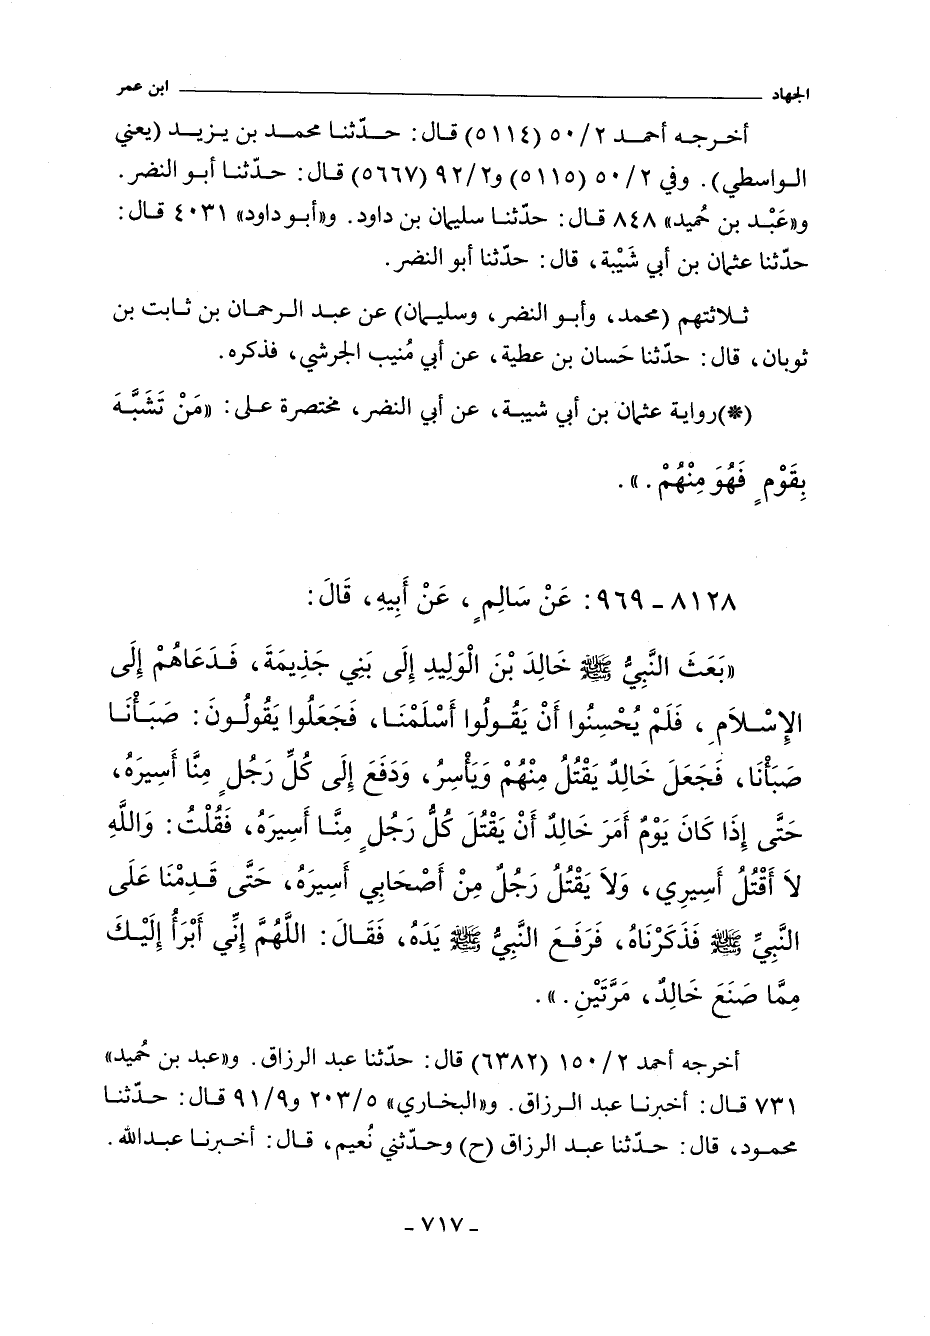 الجهاد ابن عمر
أخرجه أحمد ٢/٥٠ (٥١١٤) قال: حدّثنا محمد بن يزيد (يعني
الواسطي). وفي ٢/٥٠ (٥١١٥) و٢/٩٢ (٥٦٦٧) قال: حدّثنا أبو النضر.
و«عَبْد بن حُميد» ٨٤٨ قال: حدّثنا سليمان بن داود. و«أبو داود» ٤٠٣١ قال:
حدّثنا عثمان بن أبي شَيْبة، قال: حدّثنا أبو النضر.
ثلاثتهم (محمد، وأبو النضر، وسليمان) عن عبد الرحمان بن ثابت بن
ثوبان، قال: حدّثنا حَسان بن عطية، عن أبي مُنيب الجرشي، فذكره.
(*)رواية عثمان بن أبي شيبة، عن أبي النضر، مختصرة على: «مَنْ تَشَبَّهَ
بِقَوْمٍ فَهُوَ مِنْهُمْ.».
٨١٢٨ - ٩٦٩: عَنْ سَالِمٍ، عَنْ أَبِيهِ، قَالَ:
«بَعَثَ النَّبِيُّ ﷺ خَالِدَ بْنَ الْوَلِيدِ إِلَى بَنِي جَذِيمَةَ، فَدَعَاهُمْ إِلَى
الإِسْلَامِ، فَلَمْ يُحْسِنُوا أَنْ يَقُولُوا أَسْلَمْنَا، فَجَعَلُوا يَقُولُونَ: صَبَأْنَا
صَبَأْنَا، فَجَعَلَ خَالِدٌ يَقْتُلُ مِنْهُمْ وَيَأْسِرُ، وَدَفَعَ إِلَى كُلِّ رَجُلٍ مِنَّا أَسِيرَهُ،
حَتَّى إِذَا كَانَ يَوْمٌ أَمَرَ خَالِدٌ أَنْ يَقْتُلَ كُلُّ رَجُلٍ مِنَّا أَسِيرَهُ، فَقُلْتُ: وَاللَّهِ
لاَ أَقْتُلُ أَسِيرِي، وَلاَ يَقْتُلُ رَجُلٌ مِنْ أَصْحَابِي أَسِيرَهُ، حَتَّى قَدِمْنَا عَلَى
النَّبِيِّ ﷺ فَذَكَرْنَاهُ، فَرَفَعَ النَّبِيُّ ﷺ يَدَهُ، فَقَالَ: اللَّهُمَّ إِنِّي أَبْرَأُ إِلَيْكَ
مِمَّا صَنَعَ خَالِدٌ، مَرَّتَيْنِ.».
أخرجه أحمد ٢/١٥٠ (٦٣٨٢) قال: حدّثنا عبد الرزاق. و«عبد بن حُميد»
٧٣١ قال: أخبرنا عبد الرزاق. و«البخاري» ٥/٢٠٣ و٩/٩١ قال: حدّثنا
محمود، قال: حدّثنا عبد الرزاق (ح) وحدّثني نُعيم، قال: أخبرنا عبدالله.
- ٧١٧ -